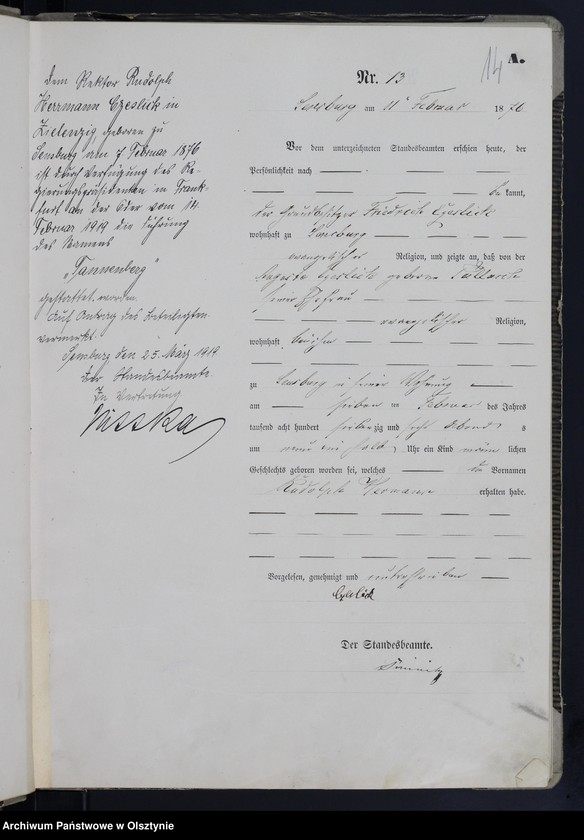 dem Rektor Rudolph
Herrmann Czeslick in
Zielenzig, geboren zu
Sensburg am 7. Februar 1876
ist durch Verfügung des Re-
gierungspräsidenten in Frank-
furt an der Oder vom 14.
Februar 1919 die Führung
des Namens
„Tannenberg"
gestattet worden.
Auf Antrag des Beteiligten
vermerkt.
Sensburg den 25. März 1919
Der Standesbeamte
In Vertretung
Nisska
14
A.
Nr. 13
Sensburg am 11 Februar 1876
Vor dem unterzeichneten Standesbeamten erschien heute, der
Persönlichkeit nach
be kannt,
der Grundbesitzer Friedrich Czeslick
wohnhaft zu Sensburg
evangelischer Religion, und zeigte an, daß von der
Czeslick geborene
seiner Ehefrau
evangelischer Religion,
wohnhaft bei ihm
zu Sensburg in seiner Wohnung
am sieben ten Februar des Jahres
tausend acht hundert siebenzig und sechs Abends
um neun ein halb Uhr ein Kind männ lichen
Geschlechts geboren worden sei, welches die Vornamen
Rudolph Hermann erhalten habe.
Vorgelesen, genehmigt und unterschrieben
Czeslick
Der Standesbeamte.
Archiwum Państwowe w Olsztynie